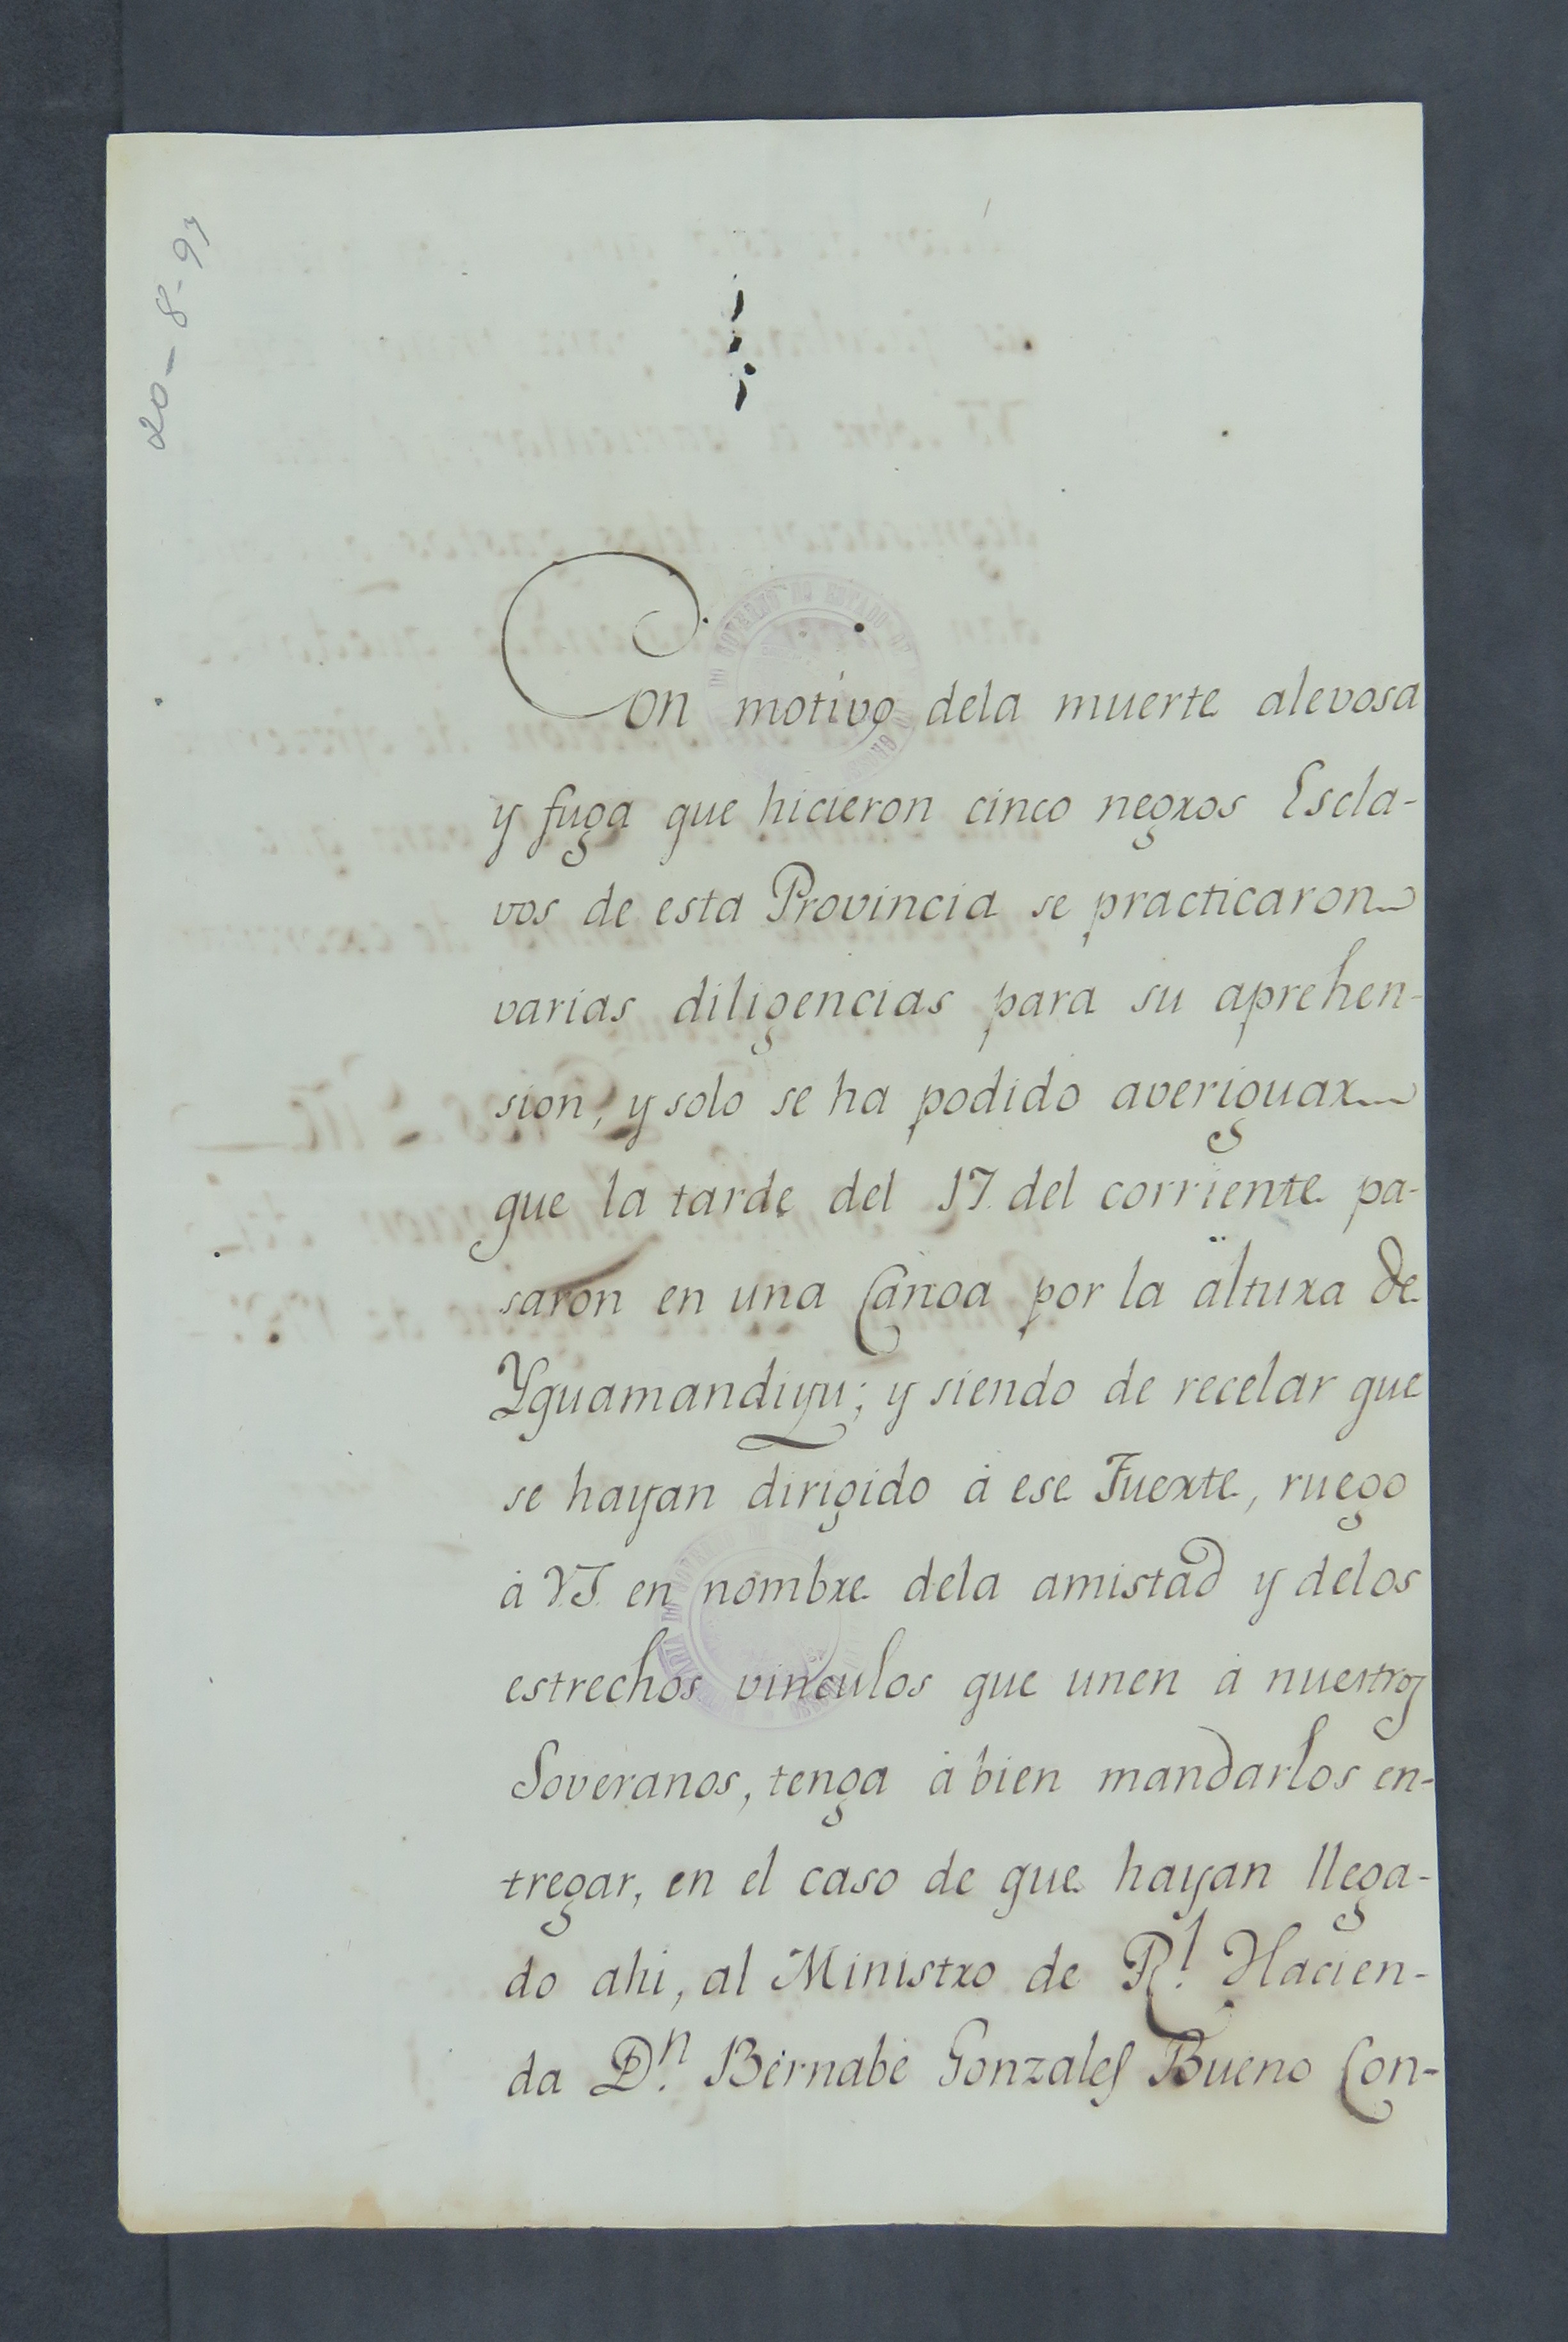 20-8-97
Con motivo dela muerte alevosa
y fuga que hicieron cinco negros Escla-
vos de esta Provincia se practicaron
varias diligencias para su aprehen-
sion, y solo se ha podido averiguar
que la tarde del 17. del corriente pa-
saron en una Canoa por la altura de
Yguamandiyu; y siendo de recelar que
se hayan dirigido à ese Fuerte, ruego
à V.S. en nombre dela amistad y delos
estrechos vinculos que unen à nuestros
Soveranos, tenga à bien mandarlos en-
tregar, en el caso de que hayan llega-
do ahi, al Ministro de Rl. Hacien-
da Dn. Bernabe Gonzales Bueno Con-